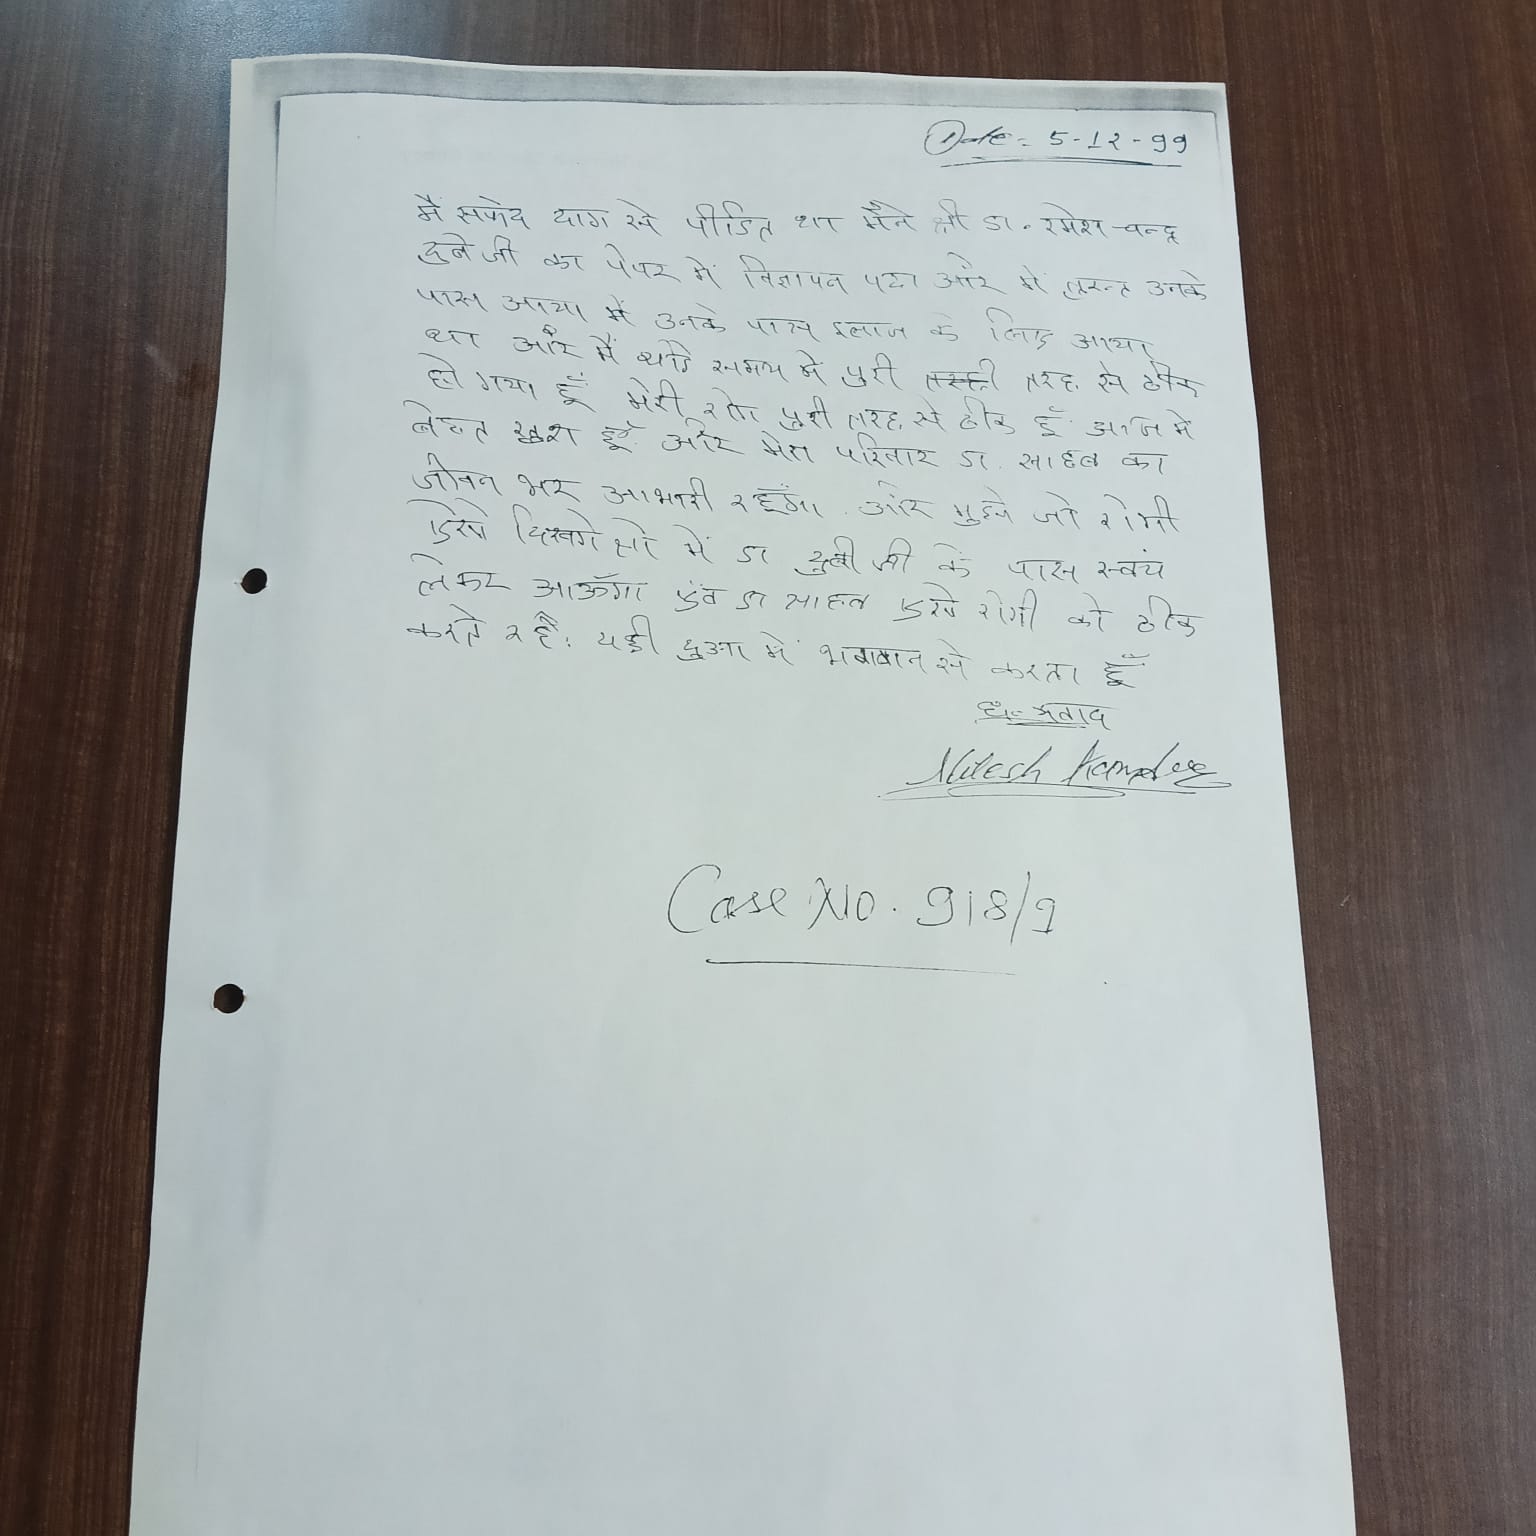 Date = 5-12-99
मैं सफेद दाग से पीडित था मैंने श्री डा. रमेश चन्द्र
दुबे जी का पेपर में विज्ञापन पढा और में तुरन्त उनके
पास आया में उनके पास इलाज के लिए आया
था और मैं थोडे समय मे पुरी तरह से ठीक
हो गया हूँ मेरी रोग पुरी तरह से ठीक हूँ आज मे
बेहत खुश हूँ और मेरा परिवार डा. साहब का
जीवन भर आभारी रहूँगा. और मुझे जो रोगी
ऐसे दिखगे तो में डा दुबे जी के पास स्वयं
लेकर आऊँगा एंव डा साहब ऐसे रोगी को ठीक
करते रहै. यही दुआ में भगवान से करता हूँ
धन्यवाद
Nilesh
Case No. 918/9